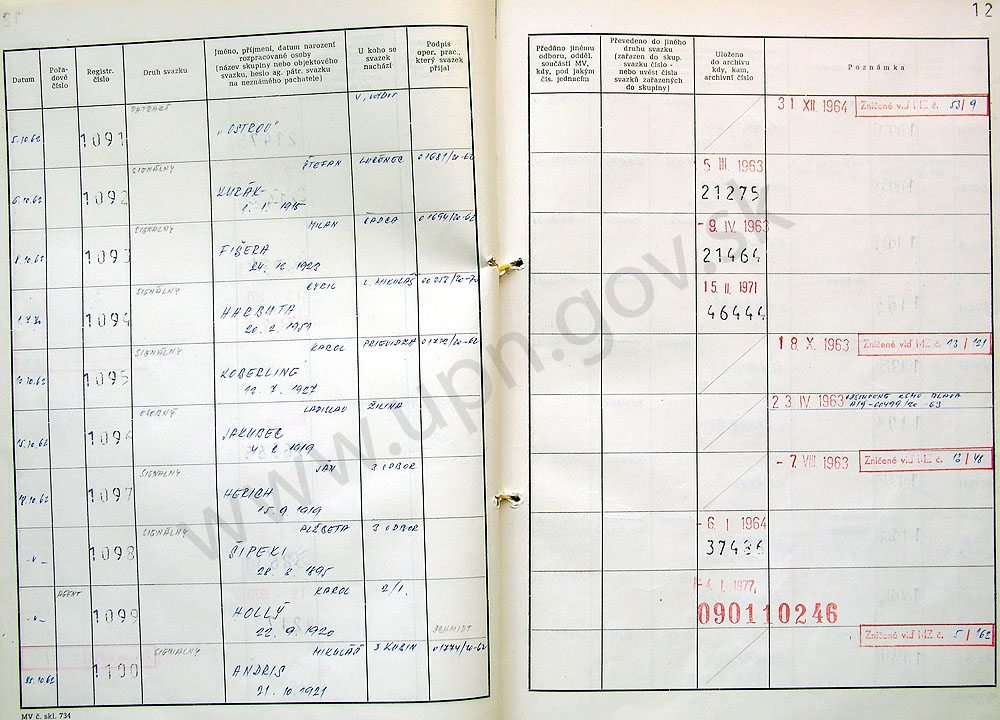 12
Datum
Pořa-
dové
číslo
Registr.
číslo
Druh svazku
Jméno, příjmení, datum narození
rozpracované osoby
(název skupiny nebo objektového
svazku, heslo ag. pátr. svazku
na neznámého pachatele)
U koho se
svazek
nachází
Podpis
oper. prac.,
který svazek
přijal
Předáno jinému
odboru, odděl.
součásti MV,
kdy, pod jakým
čís. jednacím
Převedeno do jiného
druhu svazku
(zařazen do skup.
svazku číslo -
nebo uvést čísla
svazků zařazených
do skupiny)
Uloženo
do archivu
kdy, kam,
archivní číslo
Poznámka
5.10.62 1091 „OSTROV"
31 XII. 1964 Zničené viď MZ č. 53/9
6.10.62 1092 SIGNÁLNY ŠTEFAN LUČENEC
1. 1. 1915
5 III. 1963
21275
1093 SIGNÁLNY MILAN ČADCA
FIŠERA
24. 12. 1923
- 9. IV. 1963
21464
1094 SIGNÁLNY CYRIL L. MIKULÁŠ
HARBUTA
20. 2. 1951
15. II. 1971
46444
10.10.62 1095 SIGNÁLNY KAROL PRIEVIDZA
KOBERLING
12. 7. 1927
18. X. 1963 Zničené viď MZ č. 13/121
15.10.62 OSOBNÝ LADISLAV ŽILINA
JAKUBEC
1919
23. IV. 1963
17.10.62 1097 SIGNÁLNY JÁN 3 ODBOR
HERICH
15. 9. 1919
- 7. VIII. 1963 Zničené viď MZ č. 13/48
1098 SIGNÁLNY ALŽBETA 3 ODBOR
ŠIPEKI
28. 8. 1895
- 6. I 1964
AGENT 1099 KAROL 2/1.
HOLLÝ
22. 9. 1920
SCHMIDT
- 4. I. 1977,
090110246
25.10.62 1100 SIGNÁLNY MIKULÁŠ
ANDRIS
21. 10. 1921
Zničené viď MZ č. 5/162
MV č. skl. 734
www.upn.gov.sk